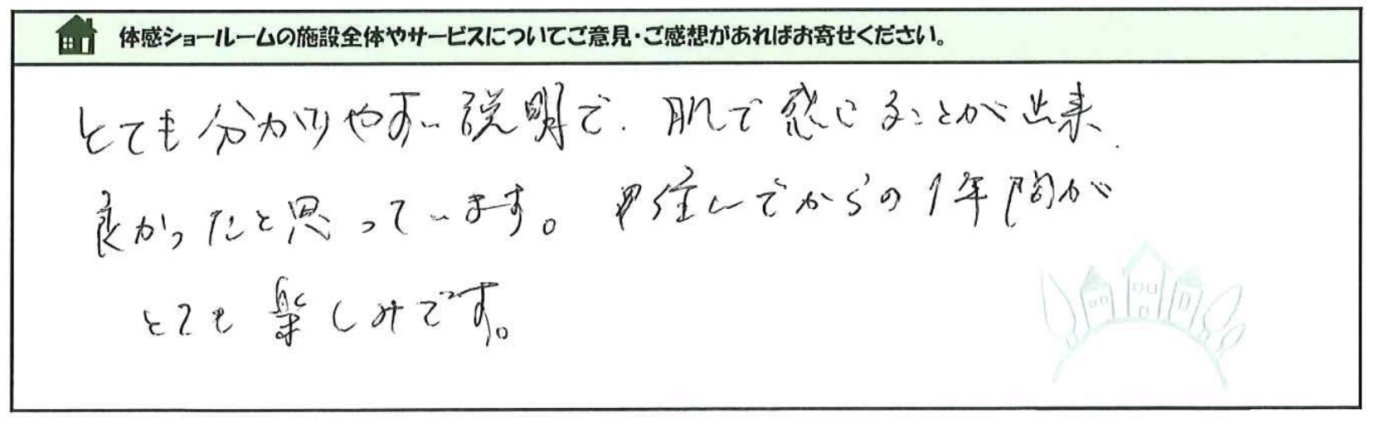 体感ショールームの施設全体やサービスについてご意見・ご感想があればお寄せください。
とても分かりやすい説明で、肌で感じることが出来、
良かったと思っています。 住んでからの1年間が
とても楽しみです。